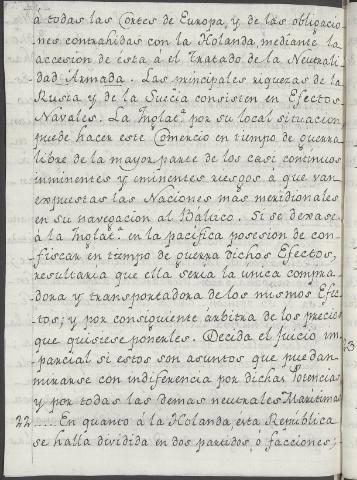 á todas las Cortes de Europa, y de las obligacio
nes contrahidas con la Holanda mediante la
accesion de esta á el Tratado de la Neutrali
dad Armada. Las principales riquezas de la
Rusia y de la Suecia consisten en Efectos
Navales. La Inglatª por su local situacion
puede hacer este Comercio en tiempo de guerra
libre de la mayor parte de los casi continuos
inminentes y eminentes riesgos á que van
expuestas las Naciones mas meridionales
en su navegacion al Baltico. Si se dexase
á la Inglatª en la pacifica posesion de con
fiscar en tiempo de guerra dichos Efectos,
resultaria que ella seria la unica compra
dora y transportadora de los mismos Efec
tos; y por consiguiente árbitra de los precios
que quisiese ponerles. Decida el juicio im
parcial si estos son asuntos que puedan
mirarse con indiferencia por dichas Potencias
y por todas las demas neutrales Maritimas
22.....En quanto á la Holanda, ésta Republica
se halla dividida en dos partidos, ó facciones;
23